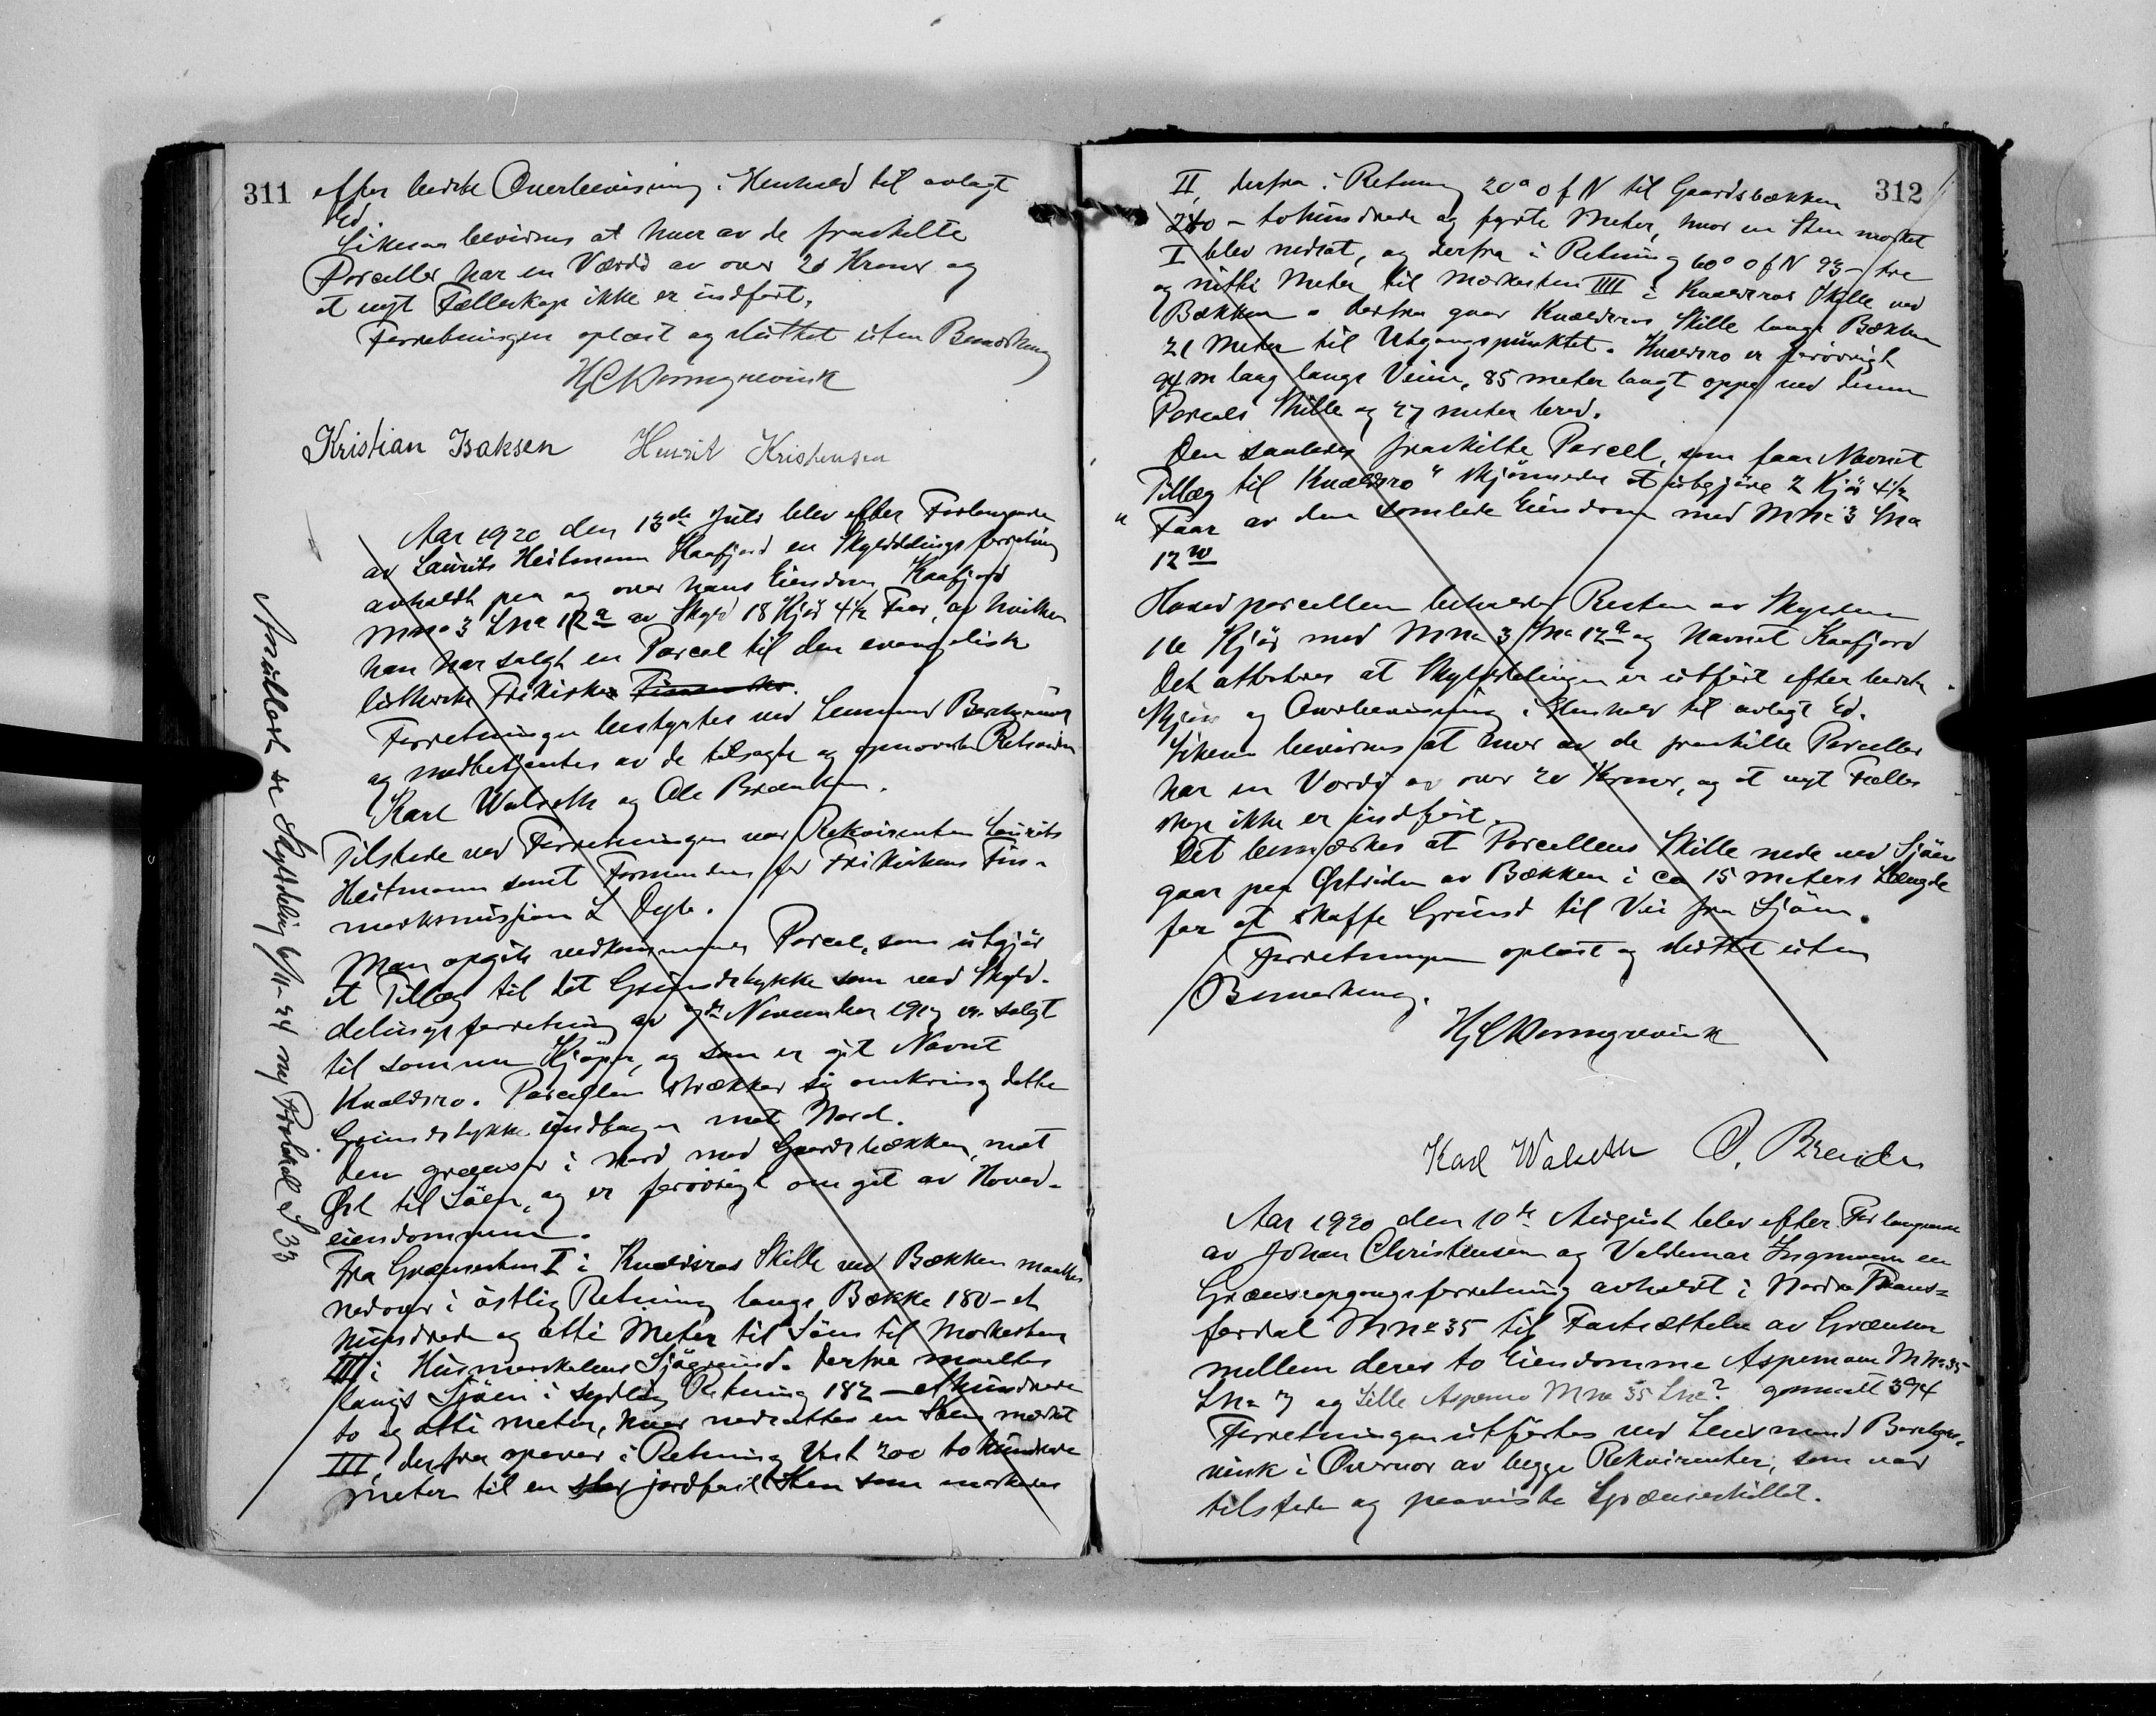 311
efter bedste Overbevisning i Henhold til avlagt
Ed.
Likesaa bevidnes at hver av de fraskilte
Parceller har en Værdi av over 20 Kroner og
at nyt Fælleskap ikke er indført.
Forretningen oplæst og sluttet uten Bemerkning
Kristian Isaksen Henrik Kristensen
Aar 1920 den 13de Juli blev efter Forlangende
av Laurits Heitmann Kaafjord en Skylddelingsforretning
avholdt paa og over hans Eiendom Kaafjord
M No 3 L No 12a av Skyld 18 Kjør 4½ Faar, av hvilken
han har solgt en Parcel til den evangelisk
lutherske Frikirke
Forretningen bestyrtes ved Lensmand
og medbetjentes av de tilsagte og opnævnte Retsvidner
Karl Walseth og Ole
Tilstede ved Forretningen var Rekvirenten Laurits
Heitmann samt Formanden for Frikirkens Fin-
marksmisjon L
Man opgik vedkommende Parcel, som utgjør
et Tillæg til det Grundstykke som ved Skyld-
delingsforretning av 7de November 1917 er solgt
til samme Kjøper, og som er git Navnet
Knældsro. Parcellen strækker sig omkring dette
Grundstykke undtagen mot Nord.
Den grænser i Nord med Gaardsbækken, mot
Øst til Søen, og er forøvrigt omgit av Hoved-
eiendommen.
Fra Grænsesten I i Knældsros Skille ved Bækken maaltes
nedover i østlig Retning langs Bække 180 – et
hundrede og otti Meter til Søen til Merkesten
III i Sjøgrund. Derfra maaltes
langs Sjøen i sydlig Retning 182 – et hundrede
to og otti meter, hvor nedsattes en Sten merket
III, derfra opover i Retning Vest 200 to hundrede
meter til en stor jordfast Sten som merkedes
Annullert se Skylddeling 6/11-24 ny Protokoll S 33
312
II, derfra i Retning 20° o f N til Gaardsbækken
240 – tohundrede og førte Meter, hvor en Sten merket
I blev nedsat, og derfra i Retning 60° o f N 93 – tre
og nitti Meter til merkesten IIII i Knældsros Skille ved
Bækken. Derfra gaar Knældsros Skille langs Bækken
21 Meter til Utgangspunktet. Knældsro er forøvrigt
94 m lang langs Veien, 85 meter langt oppe ved denne
Parcels Skille og 27 meter bred.
Den saaledes fraskilte Parcel, som faar Navnet
"Tillæg til Knældsro" skjønnedes at utgjøre 2 Kjør 4½
Faar av den samlede Eiendom med M No 3 L No
12w
Hovedparcellen beholder Resten av Skylden
16 Kjør med M No 3 L No 12a og Navnet Kaafjord
Det attesteres at Skylddelingen er utført efter bedste
Skjøn og Overbevisning i Henhold til avlagt Ed.
Likesaa bevidnes at hver av de fraskilte Parceller
har en Værdi av over 20 Kroner, og at nyt Fælles
skap ikke er indført.
Det bemærkes at Parcellens Skille nede ved Sjøen
gaar paa Østsiden av Bækken i ca 15 meters Længde
for at skaffe Grund til Vei fra Sjøen.
Forretningen oplæst og sluttet uten
Bemerkning.
Karl Walseth O.
Aar 1920 den 10de August blev efter Forlangende
av Johan Christensen og Valdemar Ingmann en
Grænseopgangsforretning avholdt i Nordre
M No 35 til Fastsættelse av Grænsen
mellem deres to Eiendomme Aspemoen M No 35
L No 7 og Lille Aspemo M No 35 L No ? gammelt 394
Forretningen utførtes ved Lensmand
i Overvær av begge Rekvirenter, som var
tilstede og paaviste Grænseskillet.